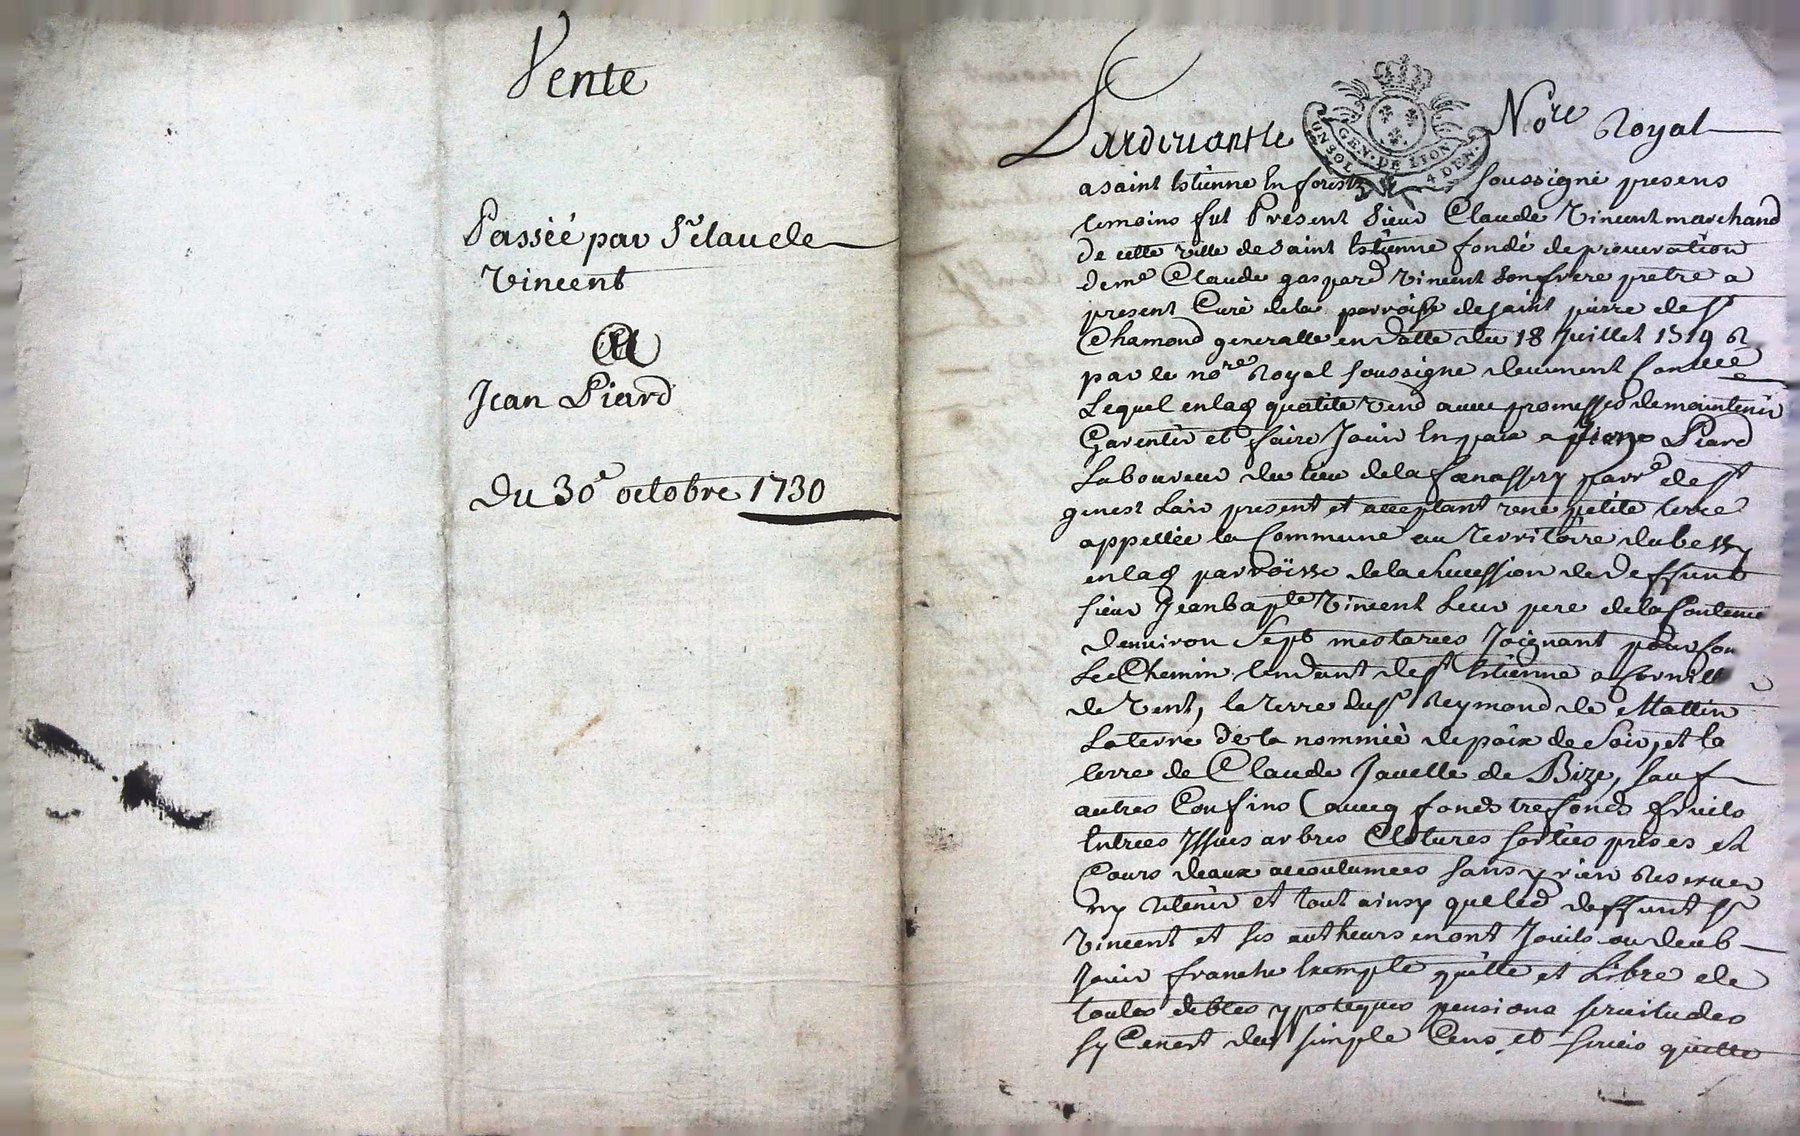 Vente
Passée par Sr Claude
Vincent
A
Jean Piard
Du 30e octobre 1730
Pardevant le Nore Royal
GEN · DE LION
UN SOL 4 DEN ·
a saint Estienne En forestz soussigné presens
temoins fut Présent Sieur Claude Vincent marchand
de cette ville de Saint Estienne fondé de procuration
de me Claude gaspard Vincent son frere pretre a
present Curé de la parroisse de saint pierre de st
Chamond generalle en datte du 18 Juillet
par le nore Royal soussigné deuement
Lequel en lad qualité Vend avec promesses de maintenir
Garentir et faire Jouir En paix a Piard
Laboureur du lieu de la parre de st
genest Lair present et acceptant une petite terre
appellée la Commune au Territoire du bessy
en lad parroïsse de la succession de deffunt
sieur Jean bapte Vincent Leur pere de la Contenue
denuiron Sept mestarees Joignant pour
Le Chemin tendant de st Estienne a
de Vent, la terre du sr Reymond de Mattin
La terre de la nommée depaix de Soir, et la
terre de Claude Javelle de Bize, sauf
autres Confins (avecq fonds trefonds fruits
Entrées Issües arbres Clotures sorties prises et
Cours deaux accoutumees sans y rien Reserver
ny Retenir et tout ainsy que led deffunt sr
Vincent et ses autheurs en ont Jouis ou deub
Jouir franche Exempte quitte et Libre de
toutes debtes ypoteques pensions servitudes
sy Cenest du simple Cens et servis quitte